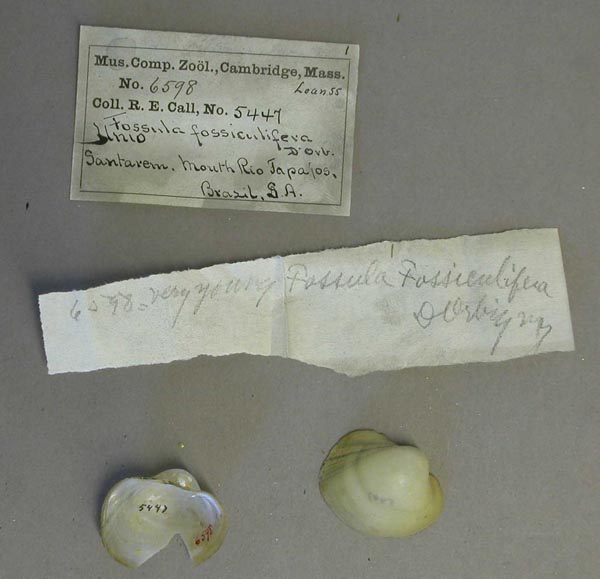 1
Mus. Comp. Zoöl., Cambridge, Mass.
No. 6598 Loan 55
Coll. R. E. Call, No. 5447
Fossula fossiculifera
Unio D'Orb.
Santarem, Mouth Rio Tapajos,
Brazil, S.A.
6598 = very young Fossula Fossiculifera
D'Orbigny
5447
6598